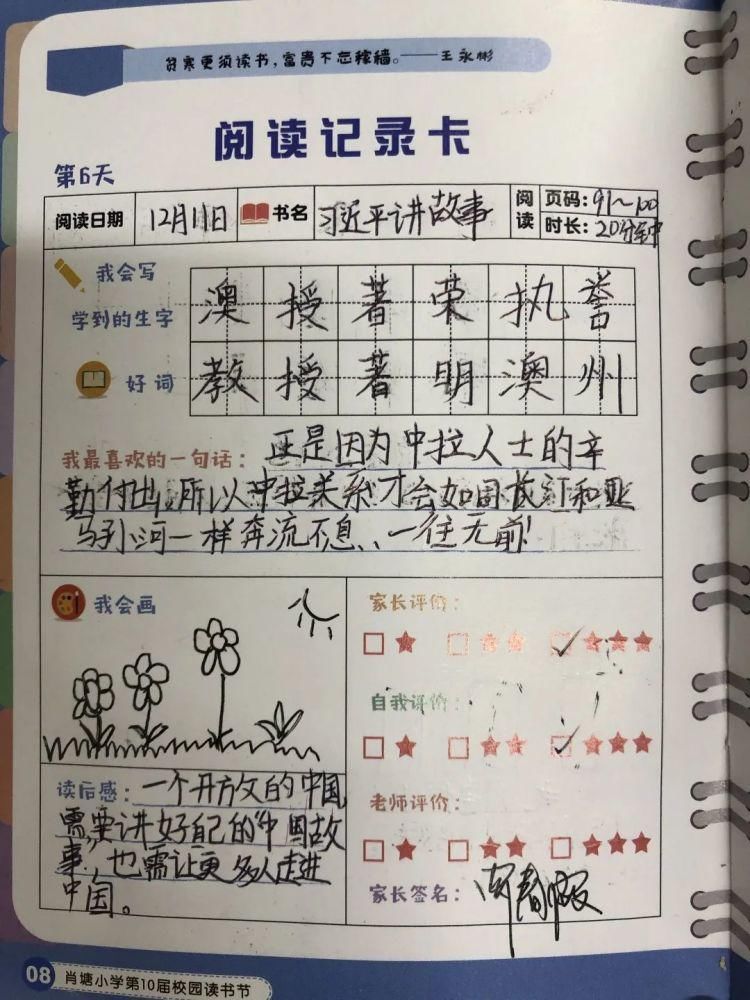 贫寒更须读书，富贵不忘稼穑。——王永彬
阅读记录卡
第6天
阅读日期 12月11日 书名 习近平讲故事 阅读 页码：91～100
时长：20分钟
我会写
学到的生字 澳授著荣执誉
好词 教授著明澳州
我最喜欢的一句话：正是因为中拉人士的辛
勤付出，所以中拉关系才会如同长江和亚
马孙河一样奔流不息、一往无前！
我会画
家长评价：
自我评价：
老师评价：
读后感：一个开放文的中国，
需要讲好自己的"中国故
事，也需让更多人走进
中国。
家长签名：
08 肖塘小学第10届校园读书节